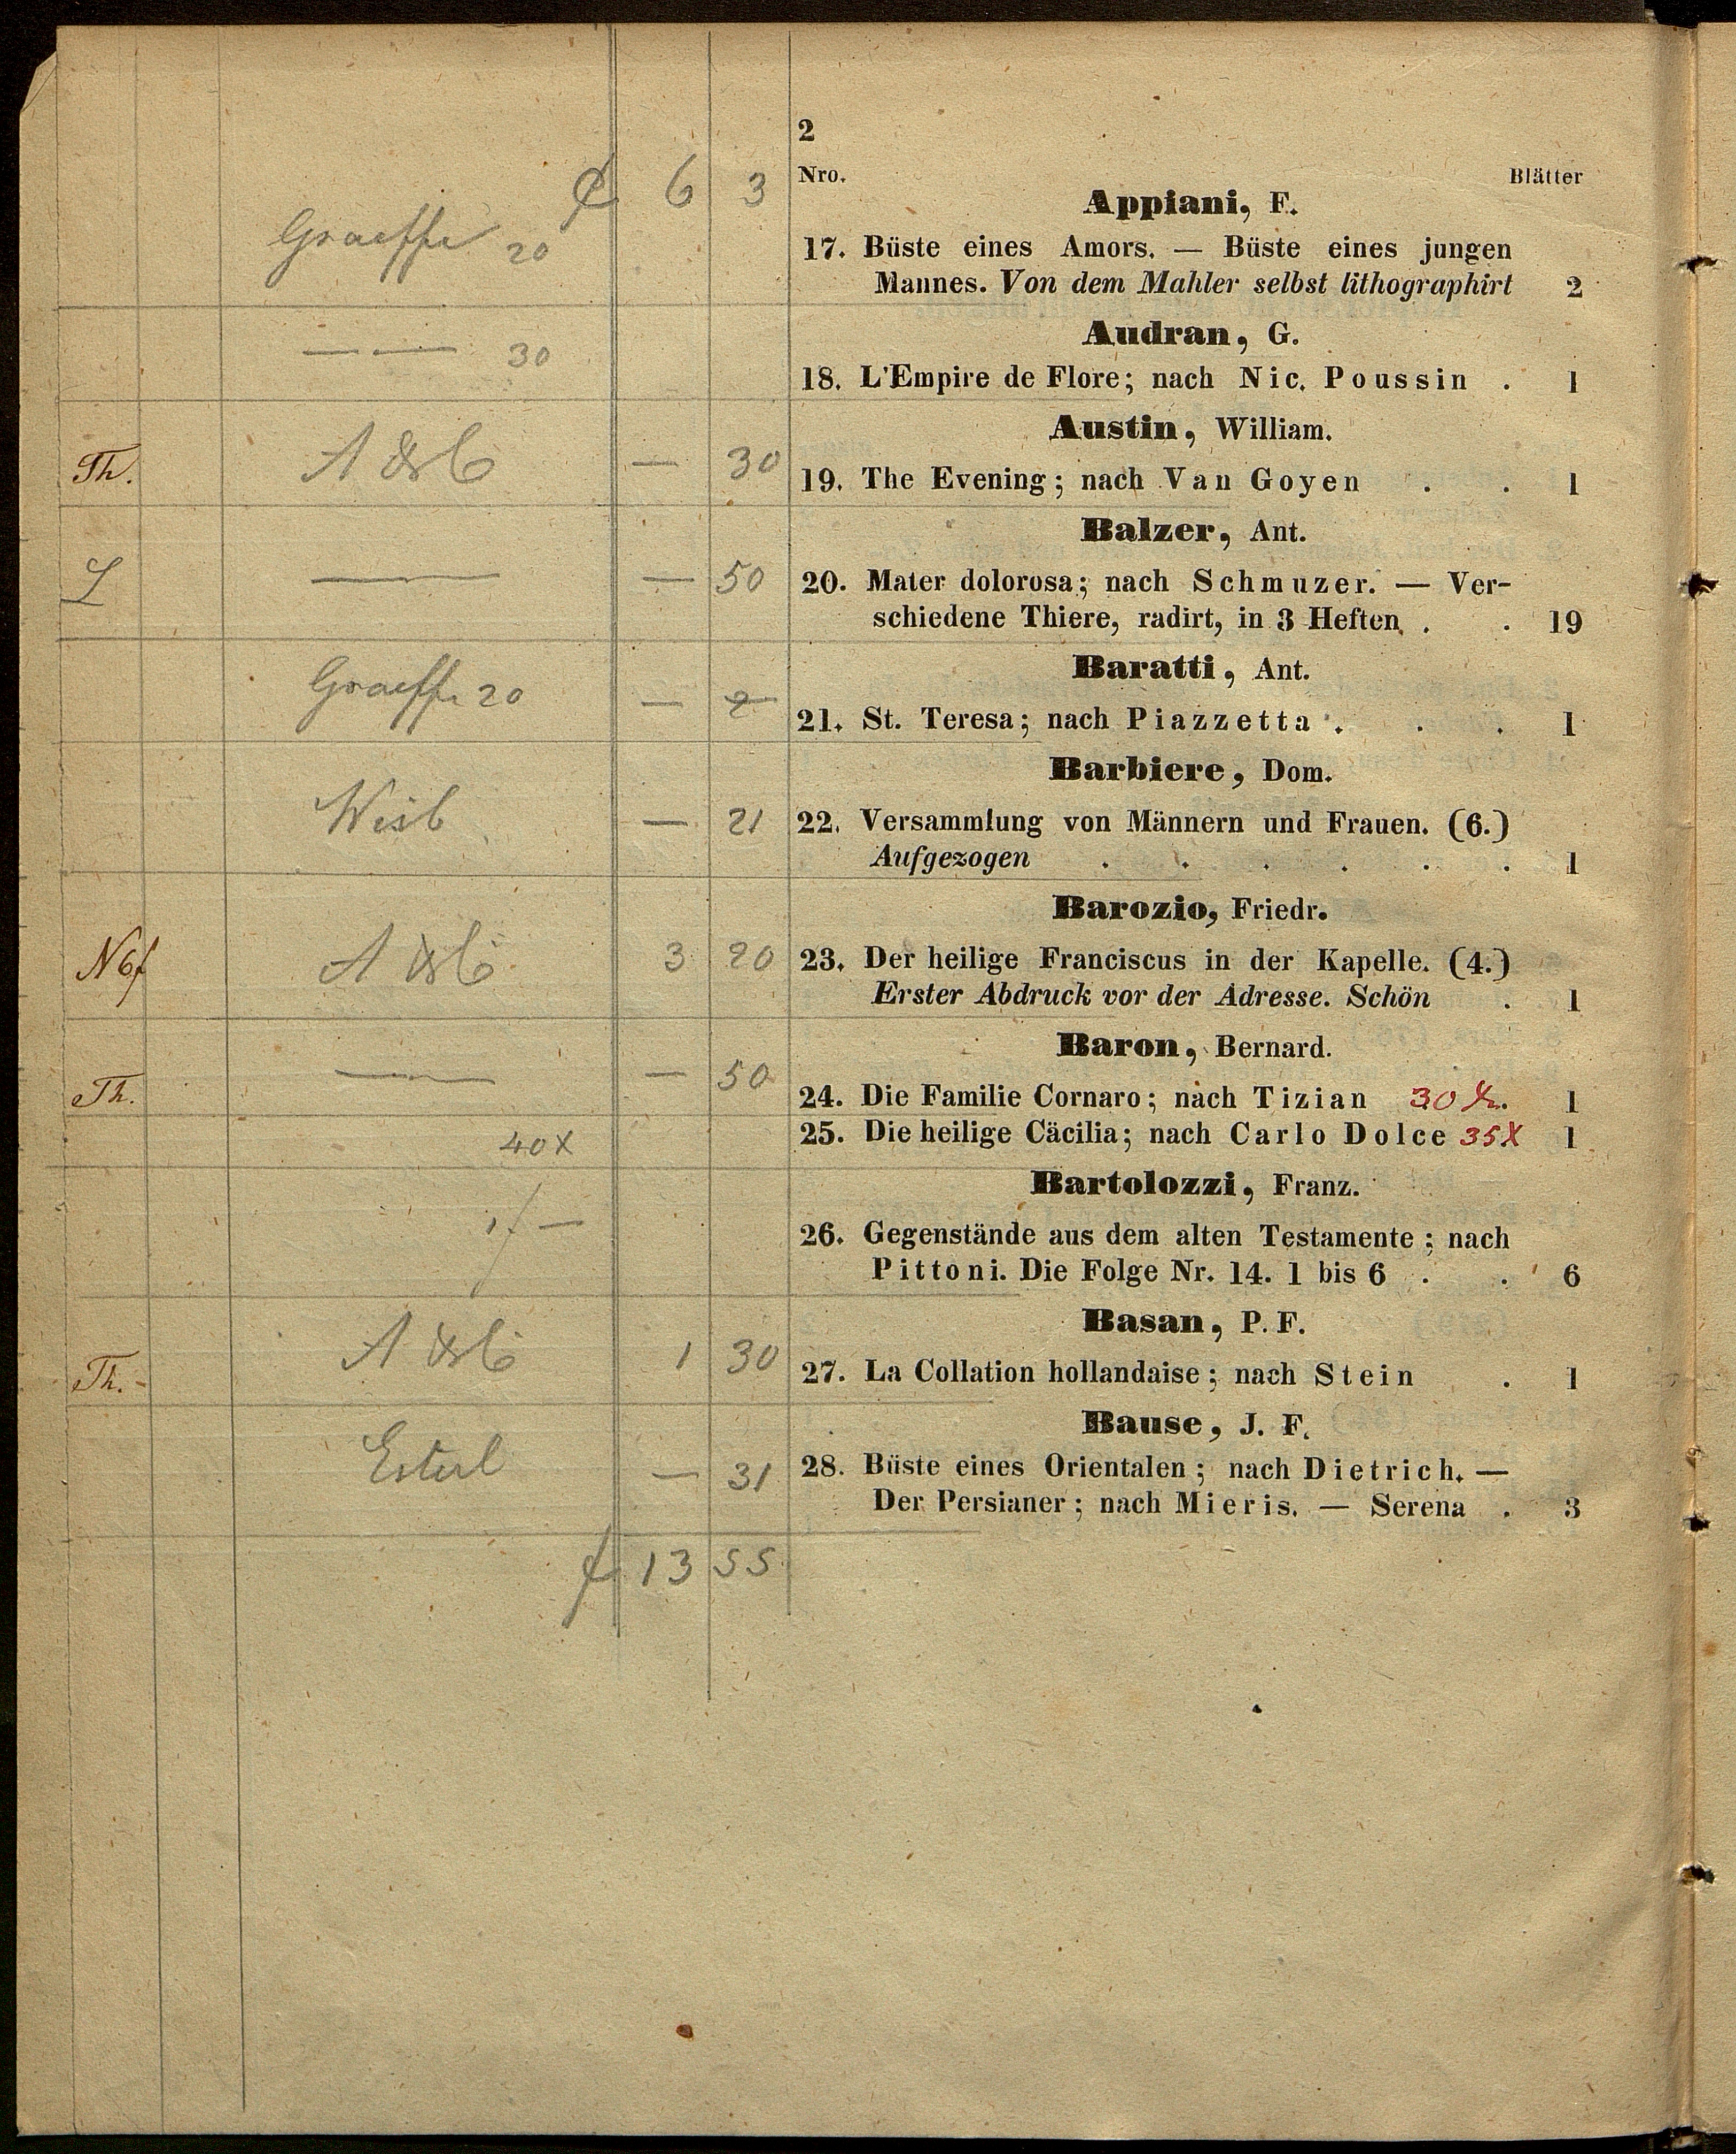 2
Nro. Blätter
6 3
Appiani, F.
Graeffe 20
17. Büste eines Amors. — Büste eines jungen
Mannes. Von dem Mahler selbst lithographirt 2
Audran, G.
— — 30
18. L'Empire de Flore; nach Nic. Poussin . 1
Austin, William.
Th. — 30
19. The Evening; nach Van Goyen . . 1
Balzer, Ant.
L — — 50
20. Mater dolorosa; nach Schmuzer. — Ver-
schiedene Thiere, radirt, in 3 Heften . . 19
Baratti, Ant.
Graeffe 20 —
21. St. Teresa; nach Piazzetta . . . 1
Barbiere, Dom.
— 21
22. Versammlung von Männern und Frauen. (6.)
Aufgezogen . . . . . . 1
Barozio, Friedr.
3 20
23. Der heilige Franciscus in der Kapelle. (4.)
Erster Abdruck vor der Adresse. Schön . 1
Baron, Bernard.
Th. — — 50
24. Die Familie Cornaro; nach Tizian 30 x. 1
40x
25. Die heilige Cäcilia; nach Carlo Dolce 35x 1
Bartolozzi, Franz.
1f —
26. Gegenstände aus dem alten Testamente; nach
Pittoni. Die Folge Nr. 14. 1 bis 6 . . 6
Basan, P. F.
Th. 1 30
27. La Collation hollandaise; nach Stein . 1
Bause, J. F.
Esterl — 31
28. Büste eines Orientalen; nach Dietrich. —
Der Persianer; nach Mieris. — Serena . 3
f 13 55